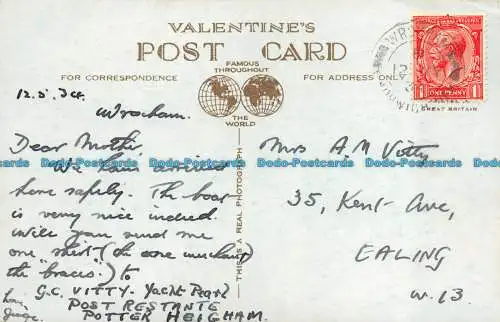 VALENTINE'S
POST CARD
FOR CORRESPONDENCE
FAMOUS
THROUGHOUT
THE
WORLD
FOR ADDRESS ONLY
POSTAGE REVENUE
ONE PENNY
GREAT BRITAIN
THIS IS A REAL PHOTOGRAPH
12.5.34.
Wroxham.
Dear Mother
We have arrived
here safely. The boat
is very nice indeed
will you send me
one shirt (the one
the braces) to
G.C. VITTY. Yacht Pearl
POST RESTANTE
POTTER HEIGHAM.
love
George
Mrs A.M Vitty
35, Kent Ave,
EALING
W.13.
bDa-Postcards